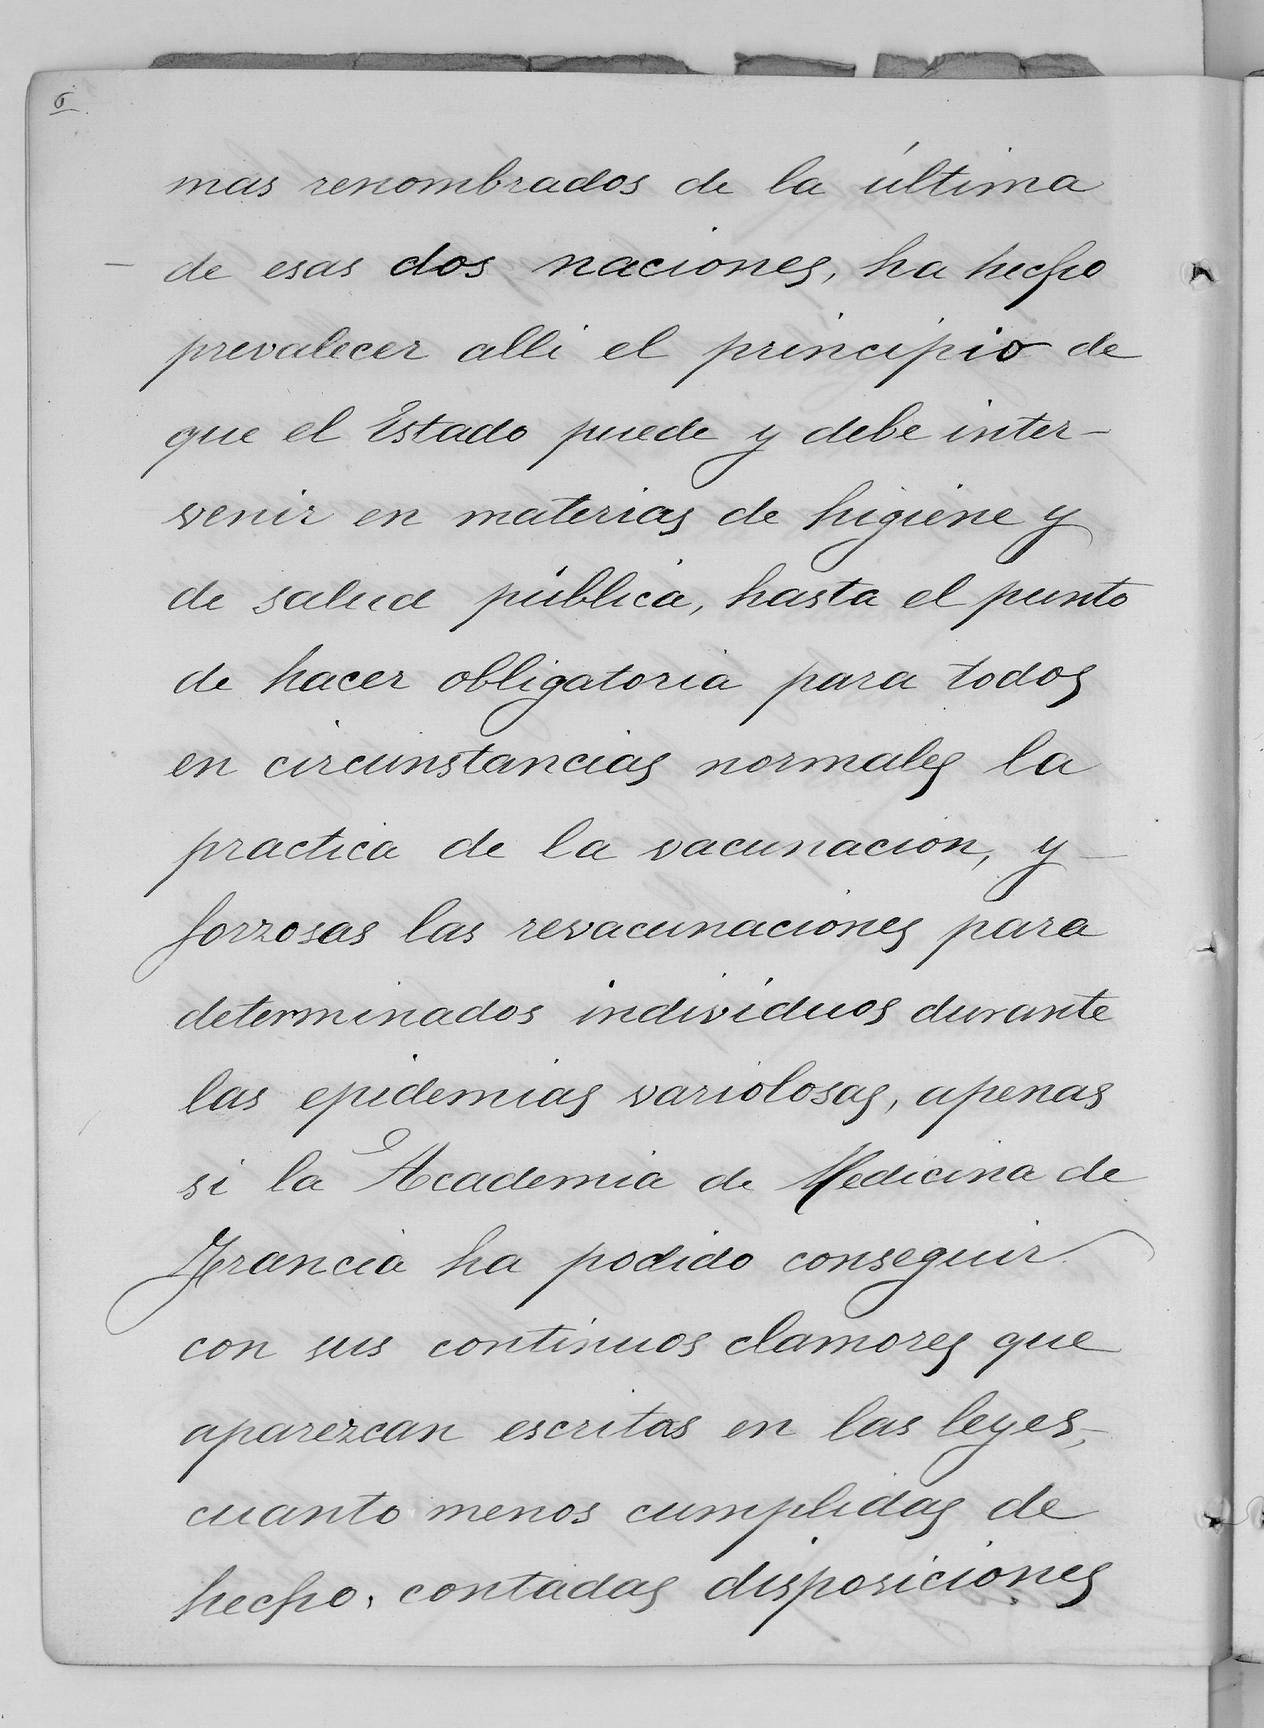 6
mas renombrados de la última
de esas dos naciones, ha hecho
prevalecer alli el principio de
que el Estado puede y debe inter-
venir en materias de higiene y
de salud pública, hasta el punto
de hacer obligatoria para todos
en circunstancias normales la
practica de la vacunacion, y
forzosas las revacunaciones para
determinados individuos durante
las epidemias variolosas, apenas
si la Academia de Medicina de
Francia ha podido conseguir
con sus continuos clamores que
aparezcan escritas en las leyes,
cuanto menos cumplidas de
hecho, contadas disposiciones